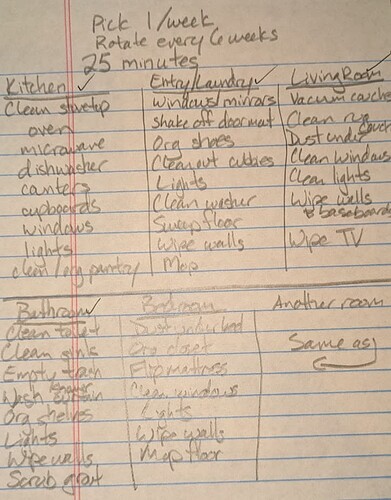 Pick 1/week
Rotate every 6 weeks
25 minutes
Kitchen ✓
Clean stovetop
oven
microwave
dishwasher
counters
cupboards
windows
lights
clean/org pantry
Entry/Laundry ✓
Windows/mirrors
Shake off doormat
Org shoes
Clean out cubbies
Lights
Clean washer
Sweep floor
Wipe walls
Mop
Living Room ✓
Vacuum couches
Clean rug
Dust under couch
Clean windows
Clean lights
Wipe walls
& baseboards
Wipe TV
Bathroom ✓
Clean toilet
Clean sinks
Empty trash
Wash shower curtain
Org shelves
Lights
Wipe walls
Scrub grout
Bedroom
Dust under bed
Org closet
Flip mattress
Clean windows
Lights
Wipe walls
Mop floor
Another room
Same as